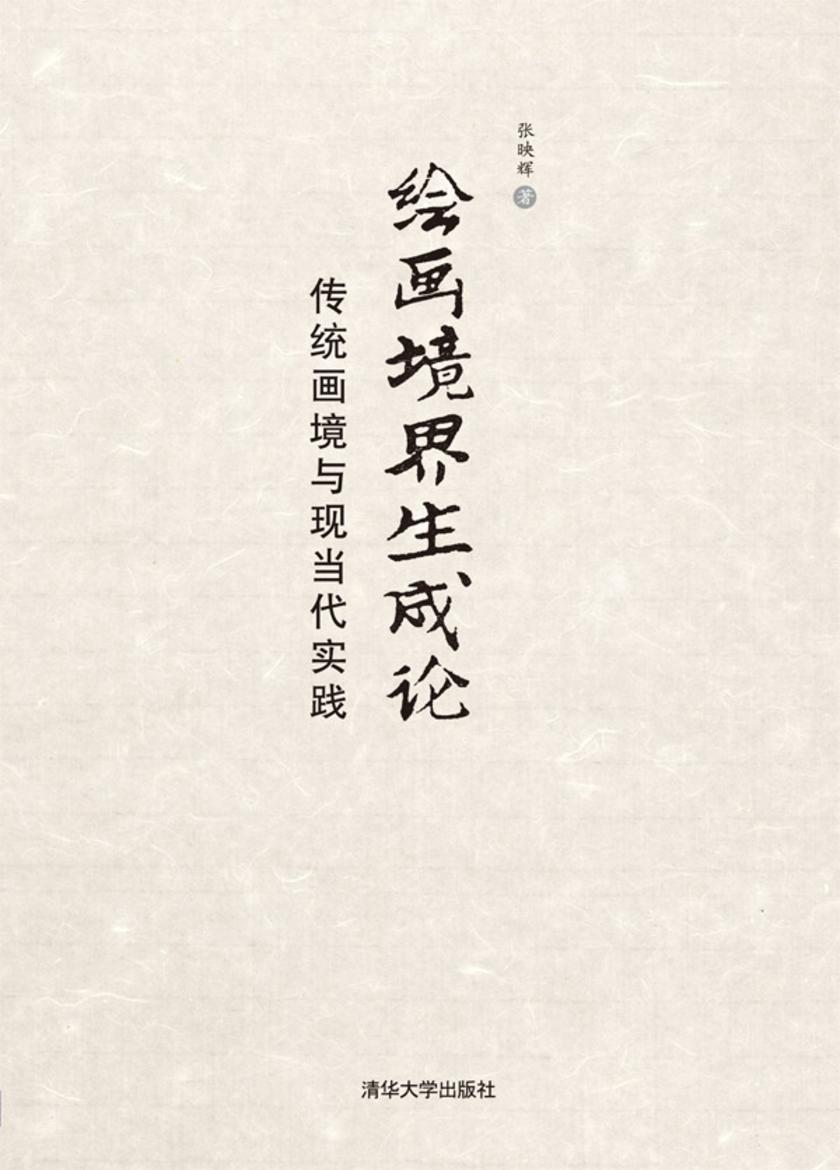 张映辉 著
绘画境界生成论
传统画境与现当代实践
清华大学出版社